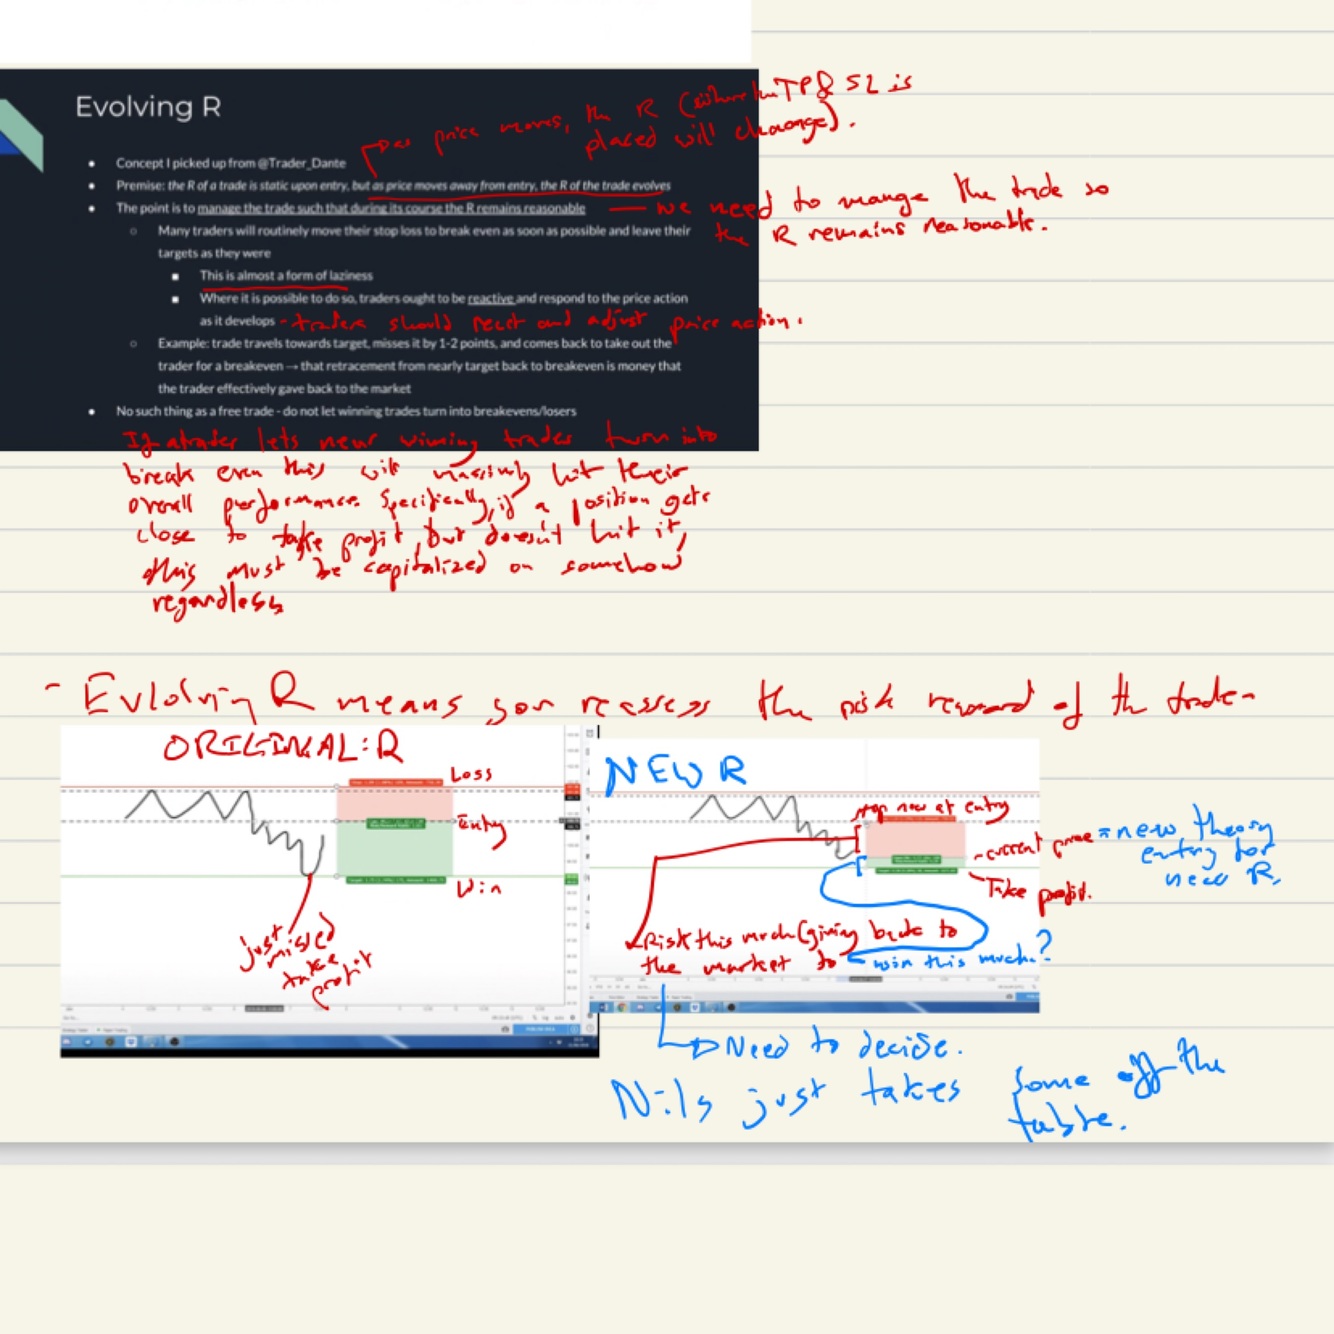 Evolving R
as price moves, the R (where the TP & SL is
placed will change).
• Concept I picked up from @Trader_Dante
• Premise: the R of a trade is static upon entry, but as price moves away from entry, the R of the trade evolves
• The point is to manage the trade such that during its course the R remains reasonable
— we need to mange the trade so
the R remains reasonable.
○ Many traders will routinely move their stop loss to break even as soon as possible and leave their
targets as they were
■ This is almost a form of laziness
■ Where it is possible to do so, traders ought to be reactive and respond to the price action
as it develops
- traders should react and adjust price action.
○ Example: trade travels towards target, misses it by 1-2 points, and comes back to take out the
trader for a breakeven → that retracement from nearly target back to breakeven is money that
the trader effectively gave back to the market
• No such thing as a free trade - do not let winning trades turn into breakevens/losers
If a trader lets near winning trades turn into
break even this will massively hit their
overall performance. Specifically, if a position gets
close to take profit, but doesn't hit it,
this must be capitalized on somehow
regardless
- Evlolving R means you reassess the risk reward of the trade-
ORIGINAL: R
Loss
Entry
Win
just
missed
take
profit
NEW R
stop now at entry
-current price
= new theory
entry for
new R.
Take profit.
Risk this much (giving back to
the market to
win this much.?
Need to decide.
Nils just takes some off the
table.